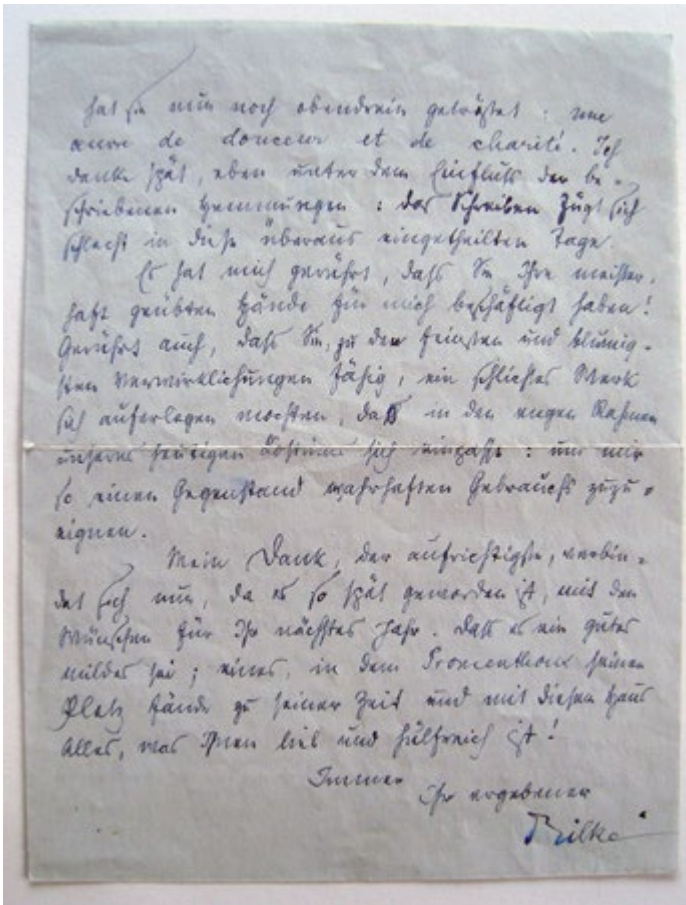 hat sie nun noch obendrein getröstet: une
œuvre de douceur et de charité. Ich
danke spät, eben unter dem Einfluß der be-
schriebenen Hemmungen: das Schreiben fügt sich
schlecht in diese überaus eingetheilten Tage.
Es hat mich gerührt, daß Sie Ihre meister-
haft geübten Hände für mich beschäftigt haben!
Gerührt auch, daß Sie, zu den feinsten und blumig-
sten Verwirklichungen fähig, ein schlichtes Werk
sich auferlegen mochten, das in den engen Rahmen
unseres heutigen Costüms sich einpasse: um mir
so einen Gegenstand wahrhaften Gebrauchs zuzu-
eignen.
Mein Dank, der aufrichtigste, verbin-
det sich nun, da es so spät geworden ist, mit den
Wünschen für Ihr nächstes Jahr. Daß es ein gutes
mildes sei; eines, in dem Promenthoux seinen
Platz fände zu seiner Zeit und mit diesem Haus
Alles, was Ihnen lieb und hülfreich ist!
Immer
Ihr ergebener
Rilke